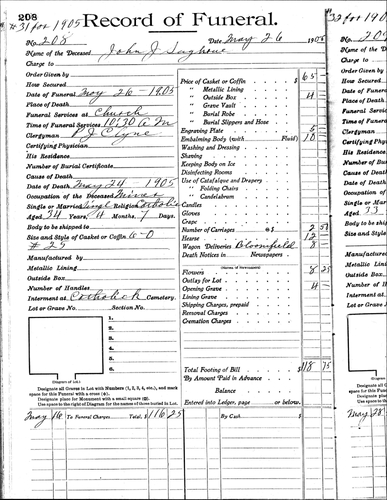 208
# 31 for 1905
Record of Funeral.
No. 208 Date May 26 190
Name of the Deceased John J
Charge to
Order Given by
How Secured
Date of Funeral May 26 - 1905
Place of Death
Funeral Services at Church
Time of Funeral Services 10:30 A M
Clergyman P J Clyne
Certifying Physician
His Residence
Number of Burial Certificate
Cause of Death
Date of Death May 24 1905
Occupation of the Deceased Miner
Single or Married Single Catholic
Aged 34 Years, 4 Months, 7 Days.
Body to be shipped to
Size and Style of Casket or Coffin 6-0
# 25
Manufactured by
Metallic Lining
Outside Box
Number of Handles
Interment at Catholick Cemetery.
Lot or Grave No. Section No.
1.
2.
3.
4.
5.
6.
(Diagram of Lot.)
Designate all Graves in Lot with Numbers (1, 2, 3, 4, etc.), and mark
space for this Funeral with a cross (+).
Designate place for Monument with a small square (□).
Use space to right of Diagram for the names of those buried in Lot.
Price of Casket or Coffin $ 65
" Metallic Lining
" Outside Box 4
" Grave Vault
" Burial Robe
" Burial Slippers and Hose
Engraving Plate 5
Embalming Body (with Fluid) 10
Washing and Dressing
Shaving
Keeping Body on Ice
Disinfecting Rooms
Use of Catafalque and Drapery
" Folding Chairs
" Candelabrum
Candles
Gloves
Crape
Number of Carriages @ $ 2 50
Hearse 12
Wagon Deliveries Bloomfield 8
Death Notices in Newspapers
(Names of Newspapers)
Flowers 8 25
Outlay for Lot
Opening Grave 4
Lining Grave
Shipping Charges, prepaid
Personal Charges
Cremation Charges
Total Footing of Bill $ 118 75
By Amount Paid in Advance
Balance
Entered into Ledger, page or below.
May To Funeral Charges Total, $ 116 25 By Cash $
32 for 1905
No.
Name of the
Charge to
Order Given
How Secured
Date of Fun
Place of Dea
Funeral Ser
Time of Fun
Clergyman
Certifying P
His Residen
Number of B
Cause of Dea
Date of Deat
Occupation o
Single or Ma
Aged 33
Body to be sh
Size and Styl
Manufactur
Metallic Lini
Outside Box
Number of H
Interment at
Lot or Grave
(Diagram
Designate
space for thi
Designate
Use space
May 28